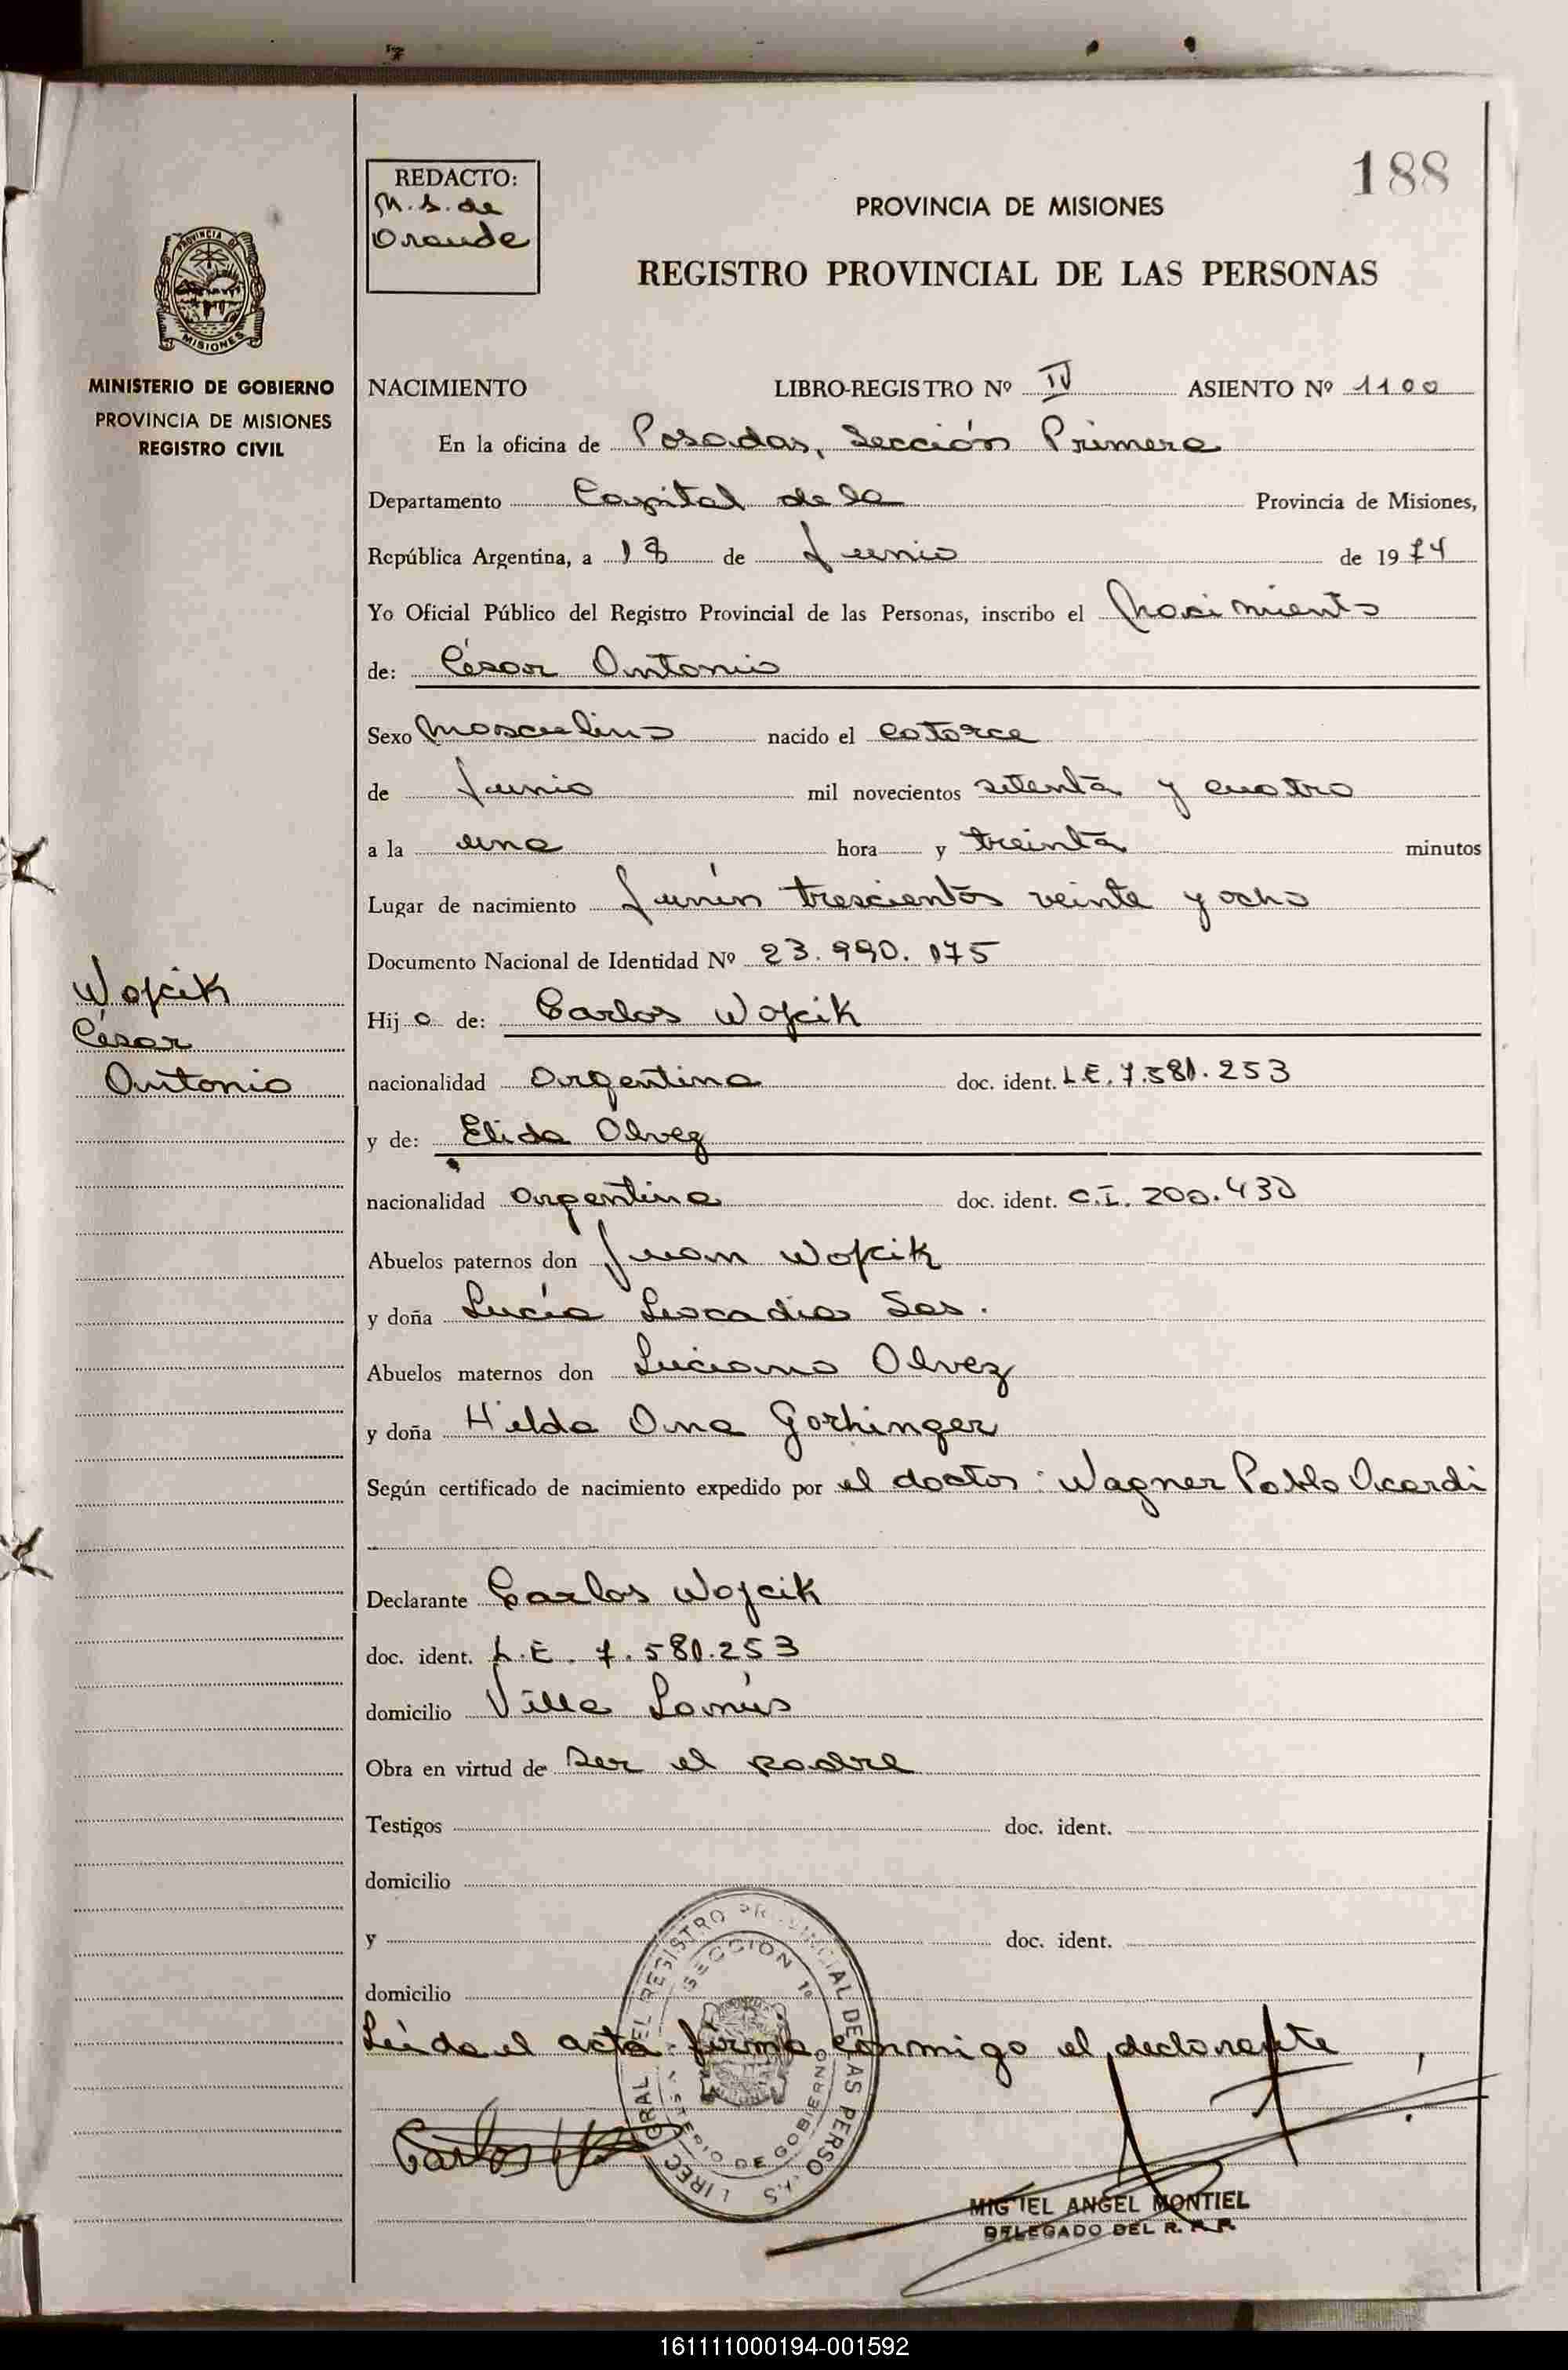 188
REDACTO:
M. S. de
PROVINCIA DE MISIONES
REGISTRO PROVINCIAL DE LAS PERSONAS
PROVINCIA DE
MISIONES
MINISTERIO DE GOBIERNO
PROVINCIA DE MISIONES
REGISTRO CIVIL
NACIMIENTO LIBRO-REGISTRO Nº IV ASIENTO Nº 1100
En la oficina de Posadas, Sección Primera
Departamento Capital de la Provincia de Misiones,
República Argentina, a 18 de Junio de 1974
Yo Oficial Público del Registro Provincial de las Personas, inscribo el Nacimiento
de: César Antonio
Sexo Masculino nacido el catorce
de Junio mil novecientos setenta y cuatro
a la una hora y treinta minutos
Lugar de nacimiento Junín trescientos veinte y ocho
Documento Nacional de Identidad Nº 23.990.175
Wojcik
César
Antonio
Hij o de: Carlos Wojcik
nacionalidad Argentina doc. ident. L.E. 7.581.253
y de: Elida Olvez
nacionalidad argentina doc. ident. C.I. 200.430
Abuelos paternos don Juan Wojcik
y doña Lucía Leocadia Sas.
Abuelos maternos don Luciano Olvez
y doña Hilda Ana
Según certificado de nacimiento expedido por el doctor: Wagner Pablo Acardi
Declarante Carlos Wojcik
doc. ident. L.E. 7.581.253
domicilio Villa Lanús
Obra en virtud de ser el padre
Testigos doc. ident.
domicilio
y doc. ident.
domicilio
Leída el acta firma conmigo el declarante
Carlos
SECCION 1º
MIGUEL ANGEL MONTIEL
DELEGADO DEL R. P. P.
161111000194-001592